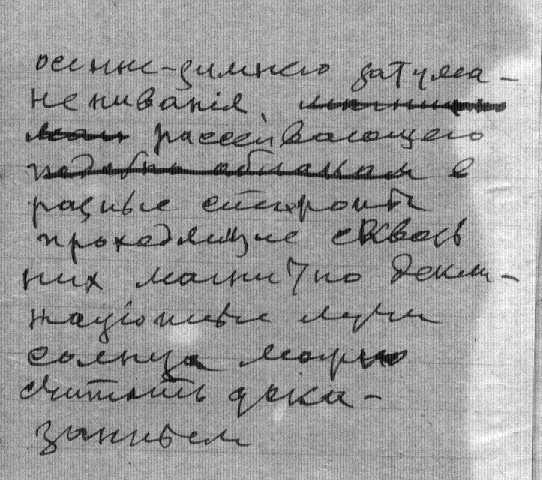 осенне-зимнего затума-
ненивания,
рассеивающего
подобно облакам в
разные стороны
проходящие сквозь
них магнитно декли-
национные лучи
солнца можно
считать дока-
занным